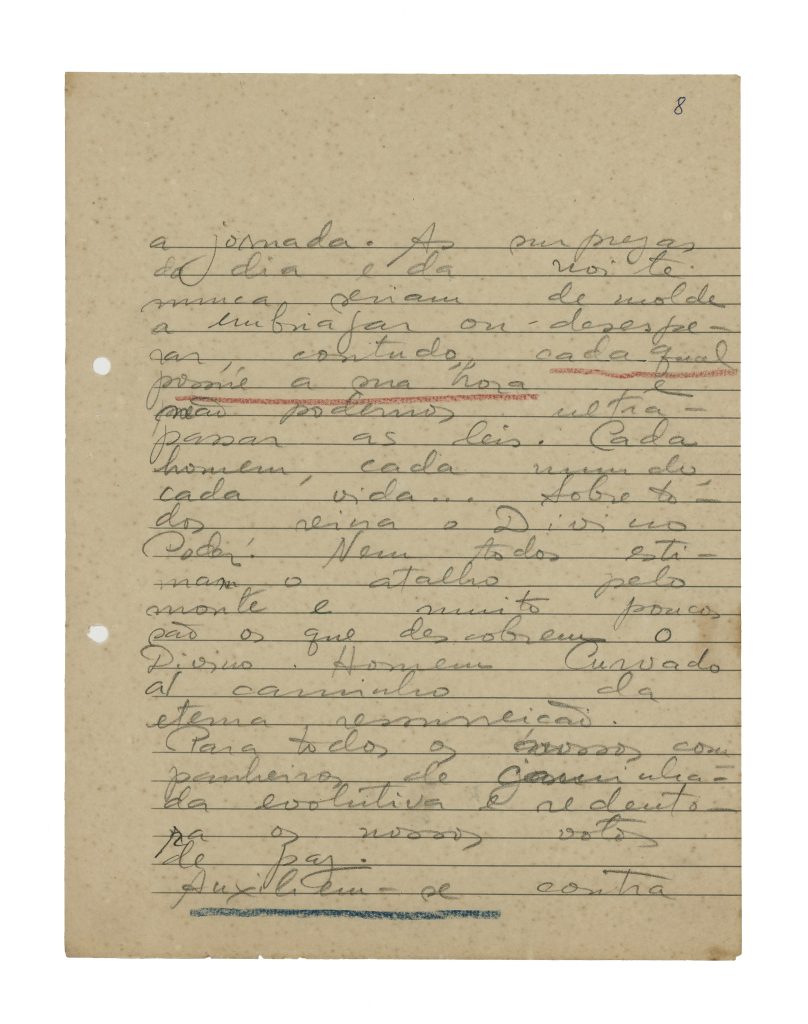 8
a jornada. As surprezas
do dia e da noite
nunca seriam de molde
a embriagar ou desespe-
rar, contudo, cada qual
possúe a sua hora e
não podemos ultra-
passar as leis. Cada
homem, cada mundo,
cada vida... Sobre to-
dos reina o Divino
Poder. Nem todos esti-
mam o atalho pelo
monte e muito poucos
são os que descobrem o
Divino Homem Curvado
a caminho da
eterna ressurreição.
Para todos os nossos com
panheiros de caminha-
da evolutiva e redento-
ra os nossos votos
de paz.
Auxiliem-se contra